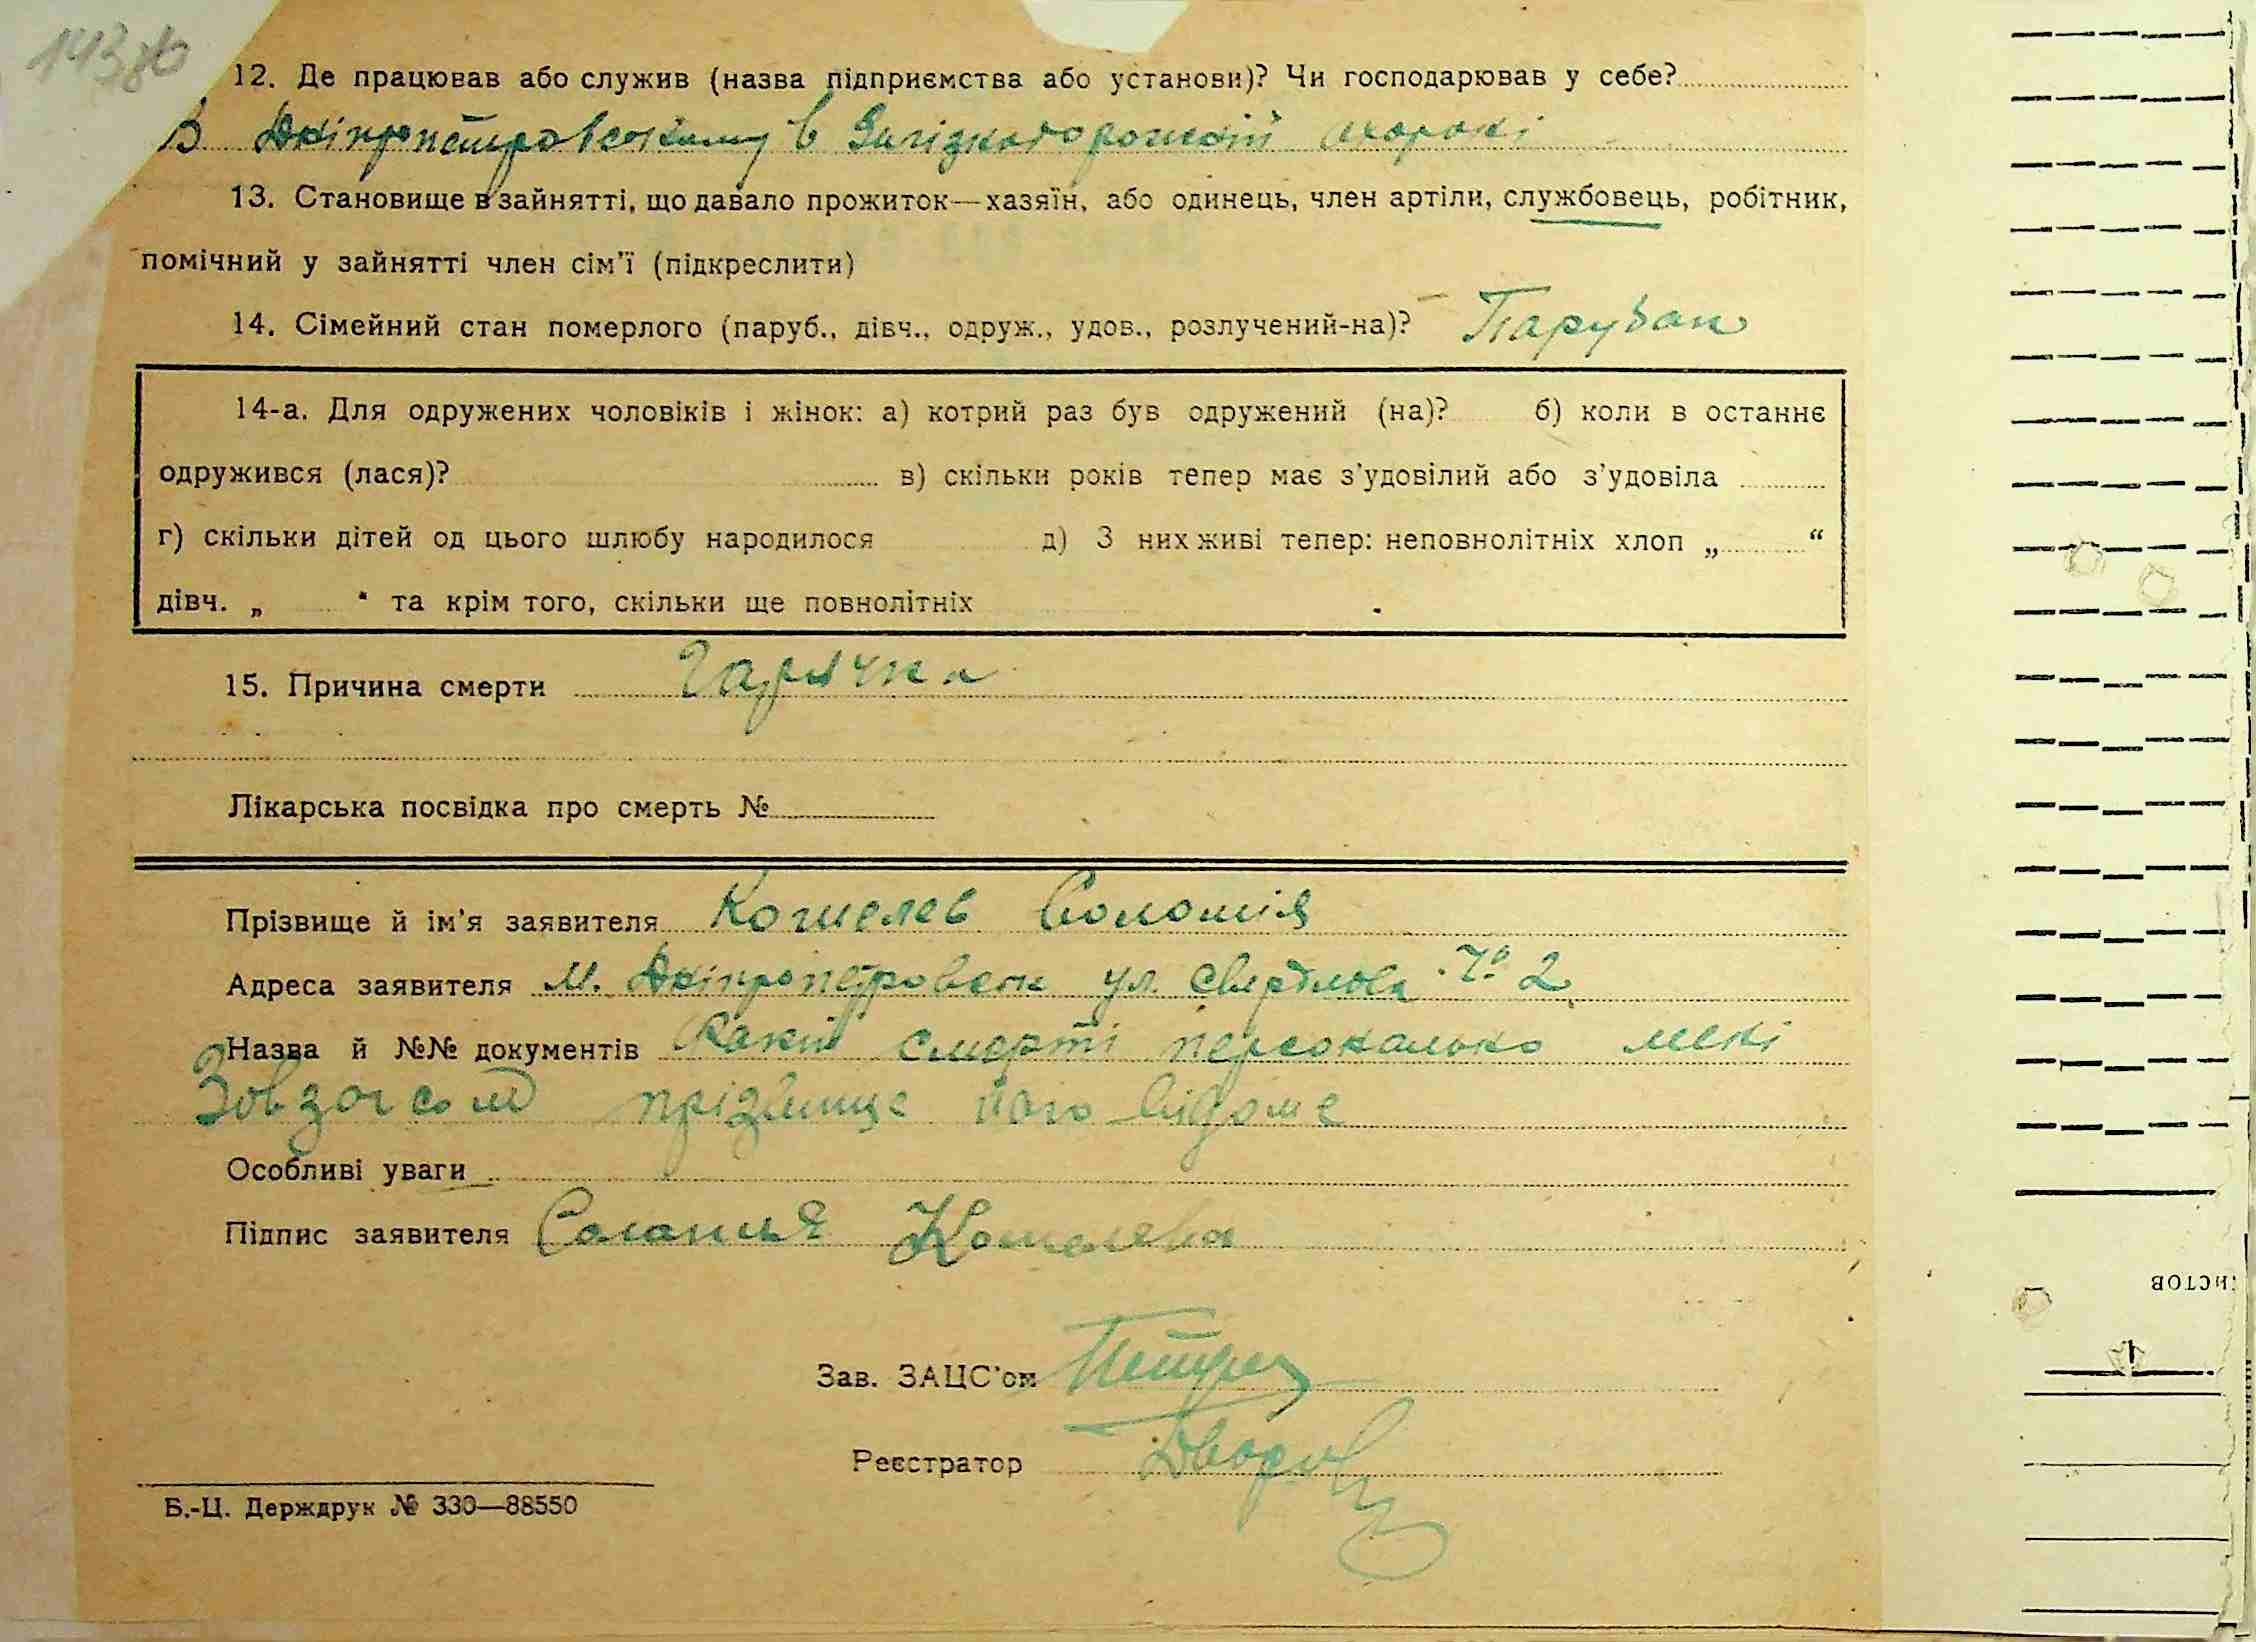 12. Де працював або служив (назва підприємства або установи)? Чи господарював у себе?
В Дніпропетровському в Залізнодорожній охороні
13. Становище в зайнятті, що давало прожиток—хазяїн, або одинець, член артіли, службовець, робітник,
помічний у зайнятті член сім'ї (підкреслити)
14. Сімейний стан померлого (паруб., дівч., одруж., удов., розлучений-на)? Парубок
14-а. Для одружених чоловіків і жінок: а) котрий раз був одружений (на)? б) коли в останнє
одружився (лася)? в) скільки років тепер має з'удовілий або з'удовіла
г) скільки дітей од цього шлюбу народилося д) З них живі тепер: неповнолітніх хлоп „ “
дівч. „ “ та крім того, скільки ще повнолітніх
15. Причина смерти Гарячка
Лікарська посвідка про смерть №
Прізвище й ім'я заявителя Кошелев Соломія
Адреса заявителя М. Дніпропетровськ ул. Свердлова № 2
Назва й №№ документів смерті персонально мені
прізвище його відоме
Особливі уваги
Підпис заявителя Кошелева
Зав. ЗАЦС'ом
Реєстратор
Б.-Ц. Держдрук № 330—88550